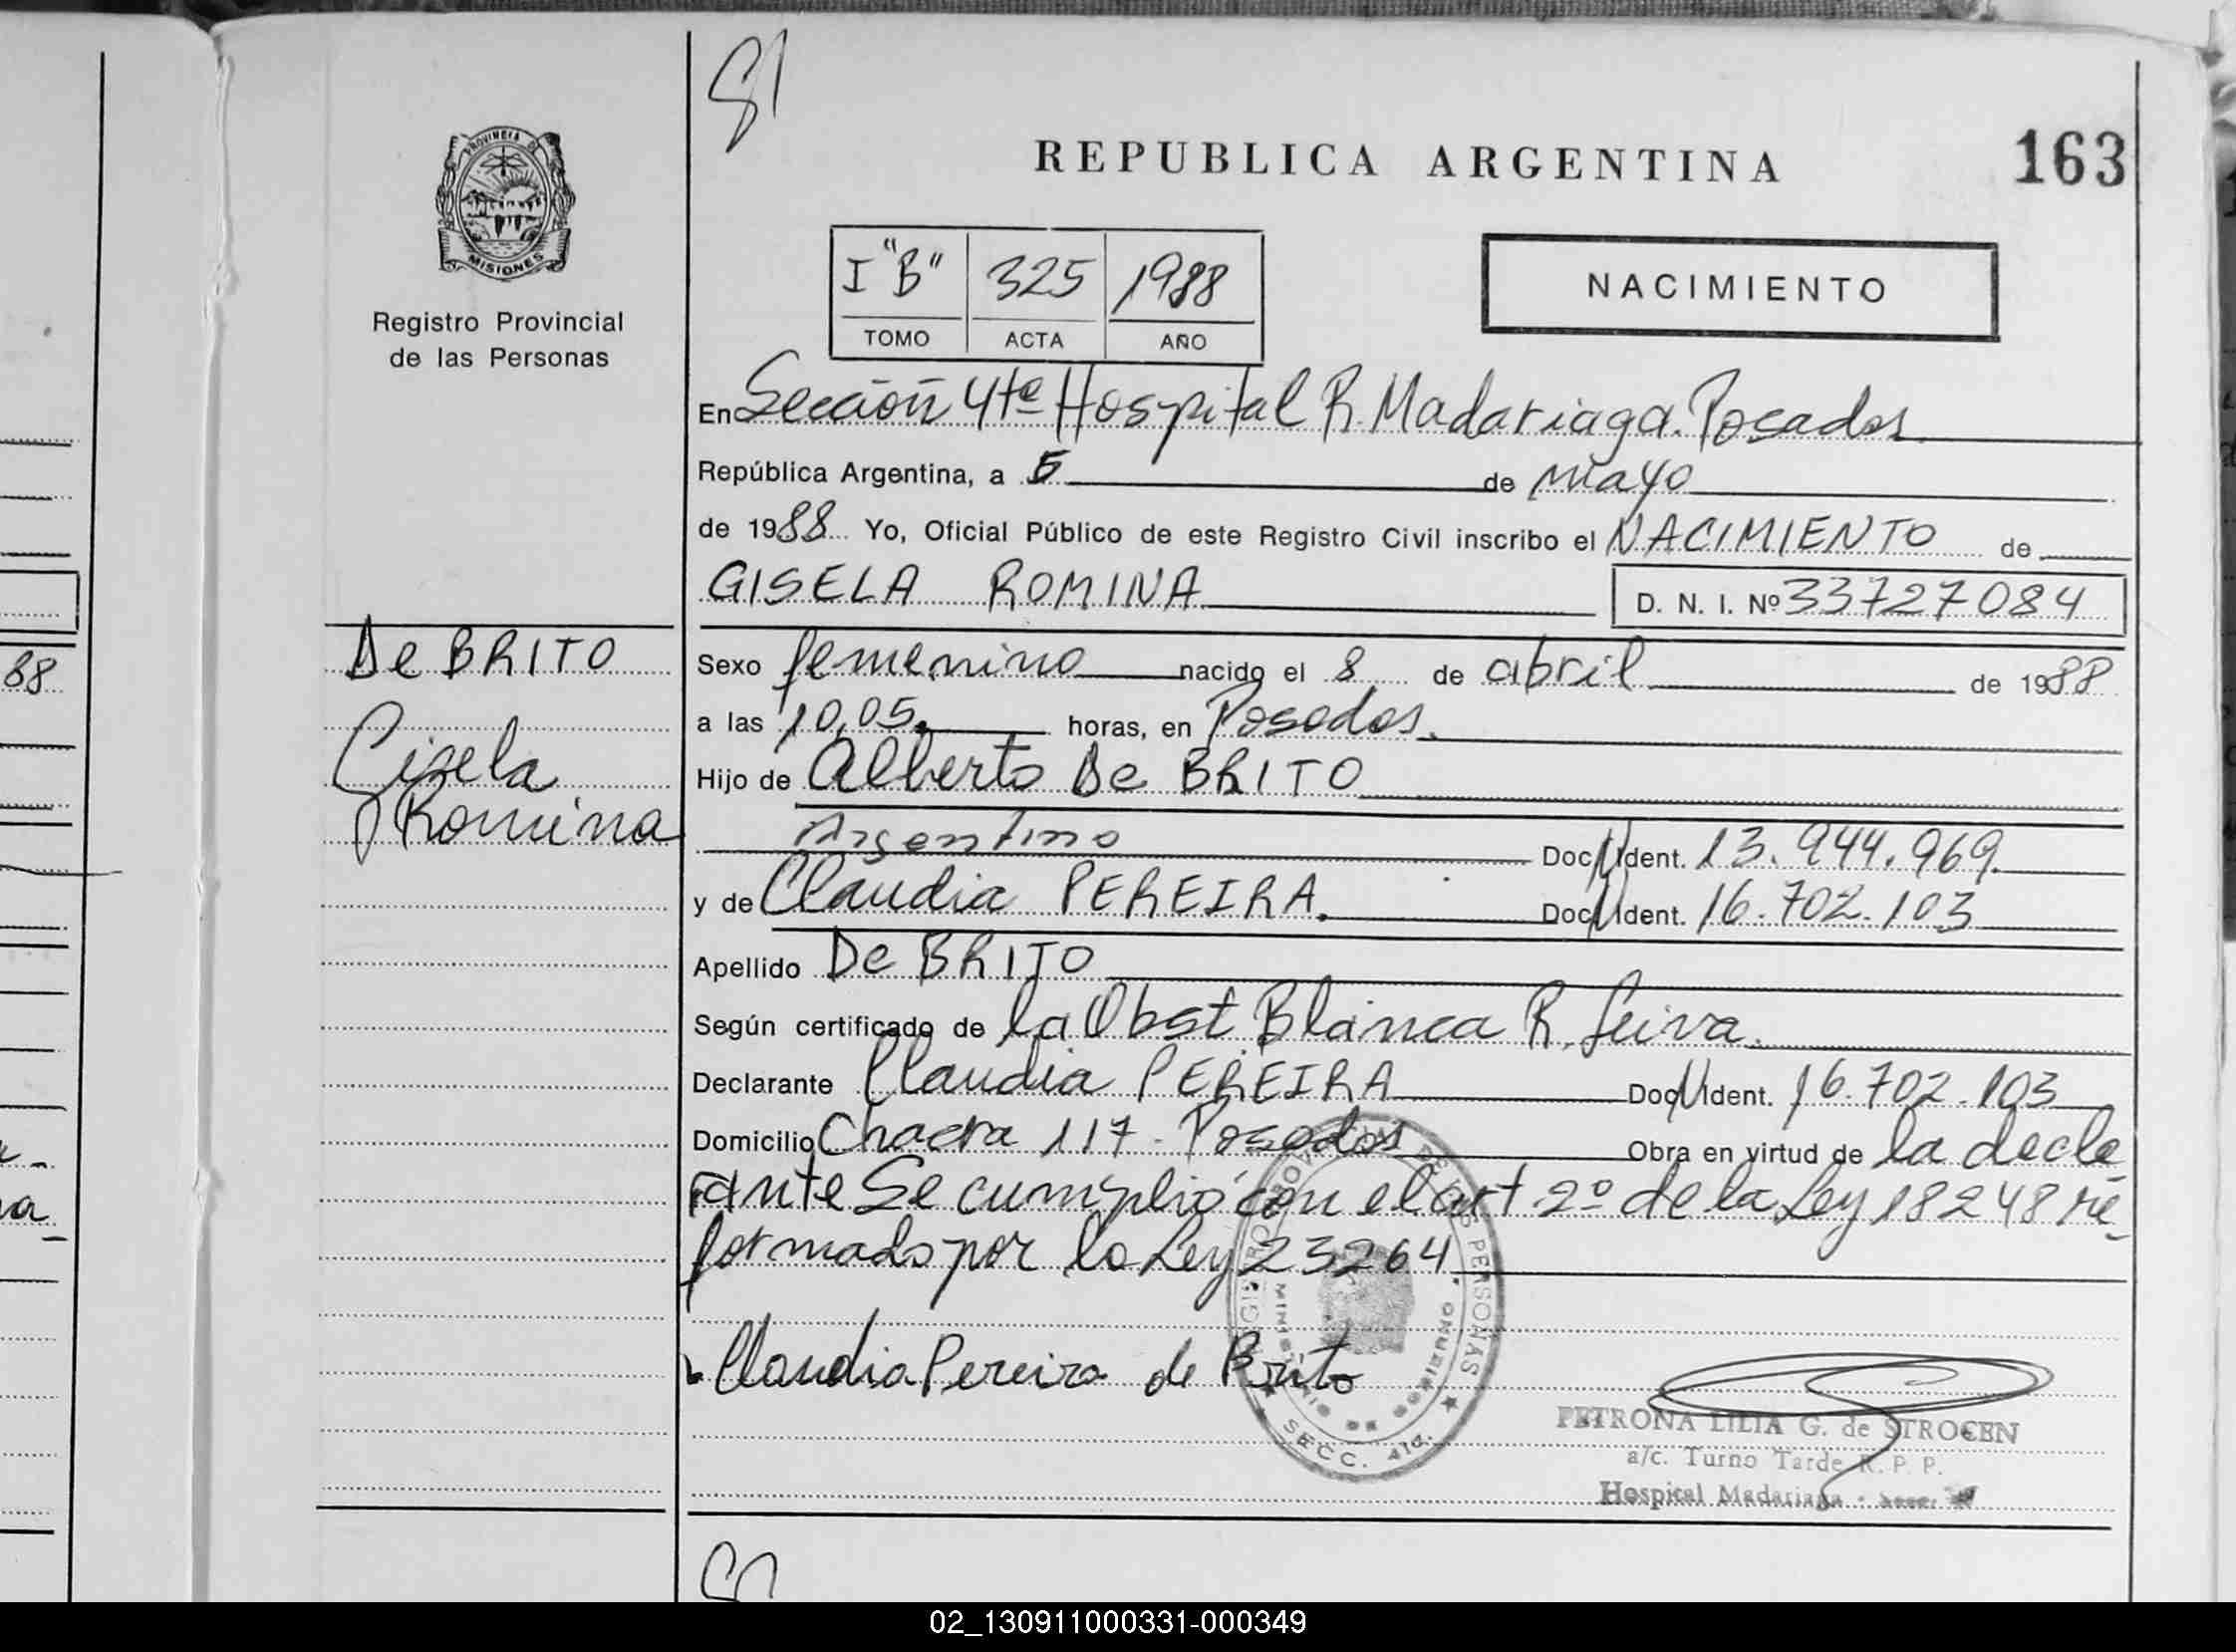 SI
REPUBLICA ARGENTINA
163
PROVINCIA DE
MISIONES
Registro Provincial
de las Personas
I "B" 325 1988
TOMO ACTA AÑO
NACIMIENTO
En Sección 4ta Hospital R. Madariaga. Posadas
República Argentina, a 5 de mayo
de 1988 Yo, Oficial Público de este Registro Civil inscribo el NACIMIENTO de
GISELA ROMINA D. N. I. Nº 33727084
De BRITO
Gisela
Romina
88
Sexo femenino nacido el 8 de abril de 1988
a las 10,05. horas, en Posadas.
Hijo de Alberto De BRITO
Argentino Doc. N. Ident. 13.944.969.
y de Claudia PEREIRA. Doc. N. Ident. 16.702.103
Apellido De BRITO
Según certificado de la Obst Blanca R. Leiva.
Declarante Claudia PEREIRA Doc. N. Ident. 16.702.103
Domicilio Chacra 117 - Posadas Obra en virtud de la decla
rante Se cumplió con el art 2º de la Ley 18248 re-
formado por la Ley 23264.
Claudia Pereira de Brito
PERSONAS
SECC. 4ta.
PETRONA LILIA G. de STROCEN
a/c. Turno Tarde R. P. P.
Hospital Madariaga -
02_130911000331-000349